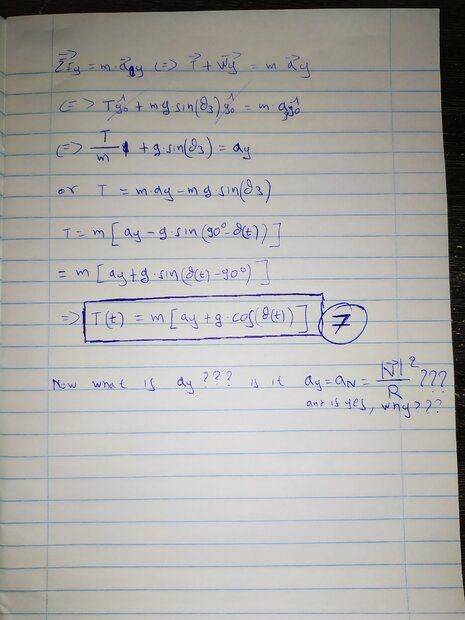 ΣFy = m·ay (=> T + Wy = m ay
(=> Tŷ0 + mg·sin(ϑ3)ŷ0 = m·ayŷ0
(=> T/m + g·sin(ϑ3) = ay
or T = m·ay - mg sin(ϑ3)
T = m[ay - g·sin(90° - ϑ(t))]
= m[ay + g·sin(ϑ(t) - 90°)]
=> T(t) = m[ay + g·cos(ϑ(t))] 7
Now what is ay ??? is it ay = aN = |V|²/R ???
ans is yes, why???